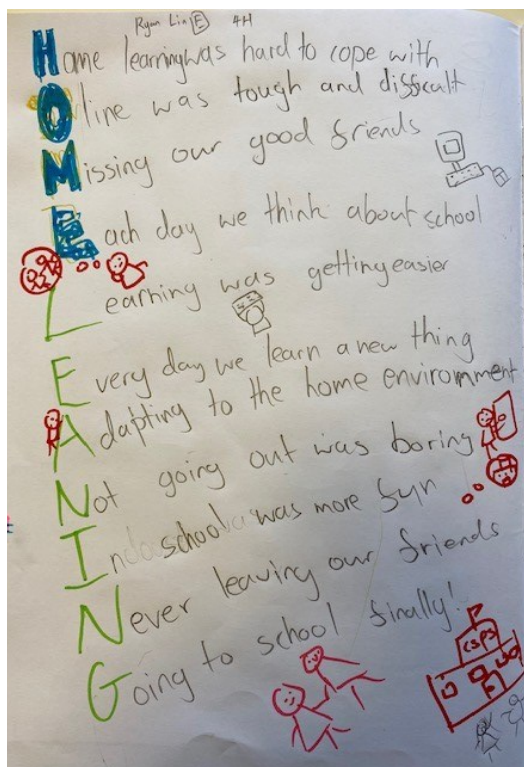 Ryan Lin E 4H
Home learning was hard to cope with
Online was tough and difficalt
Missing our good friends
Each day we think about school
Learning was getting easier
Every day we learn a new thing
Adapting to the home enviromment
Not going out was boring
In school was more fun
Never leaving our friends
Going to school finally!
CSPS